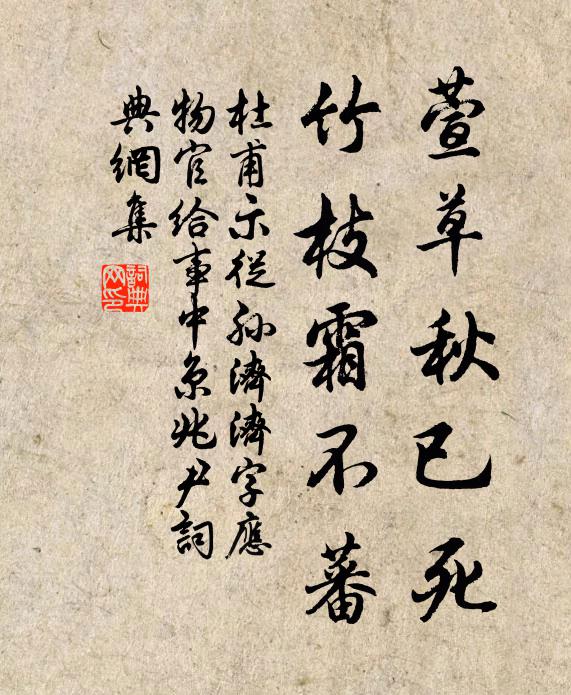 萱草秋已死
竹枝霜不蕃
杜甫示從孫濟濟字應
物官給事中京兆尹詞
典網集
詞典
网印